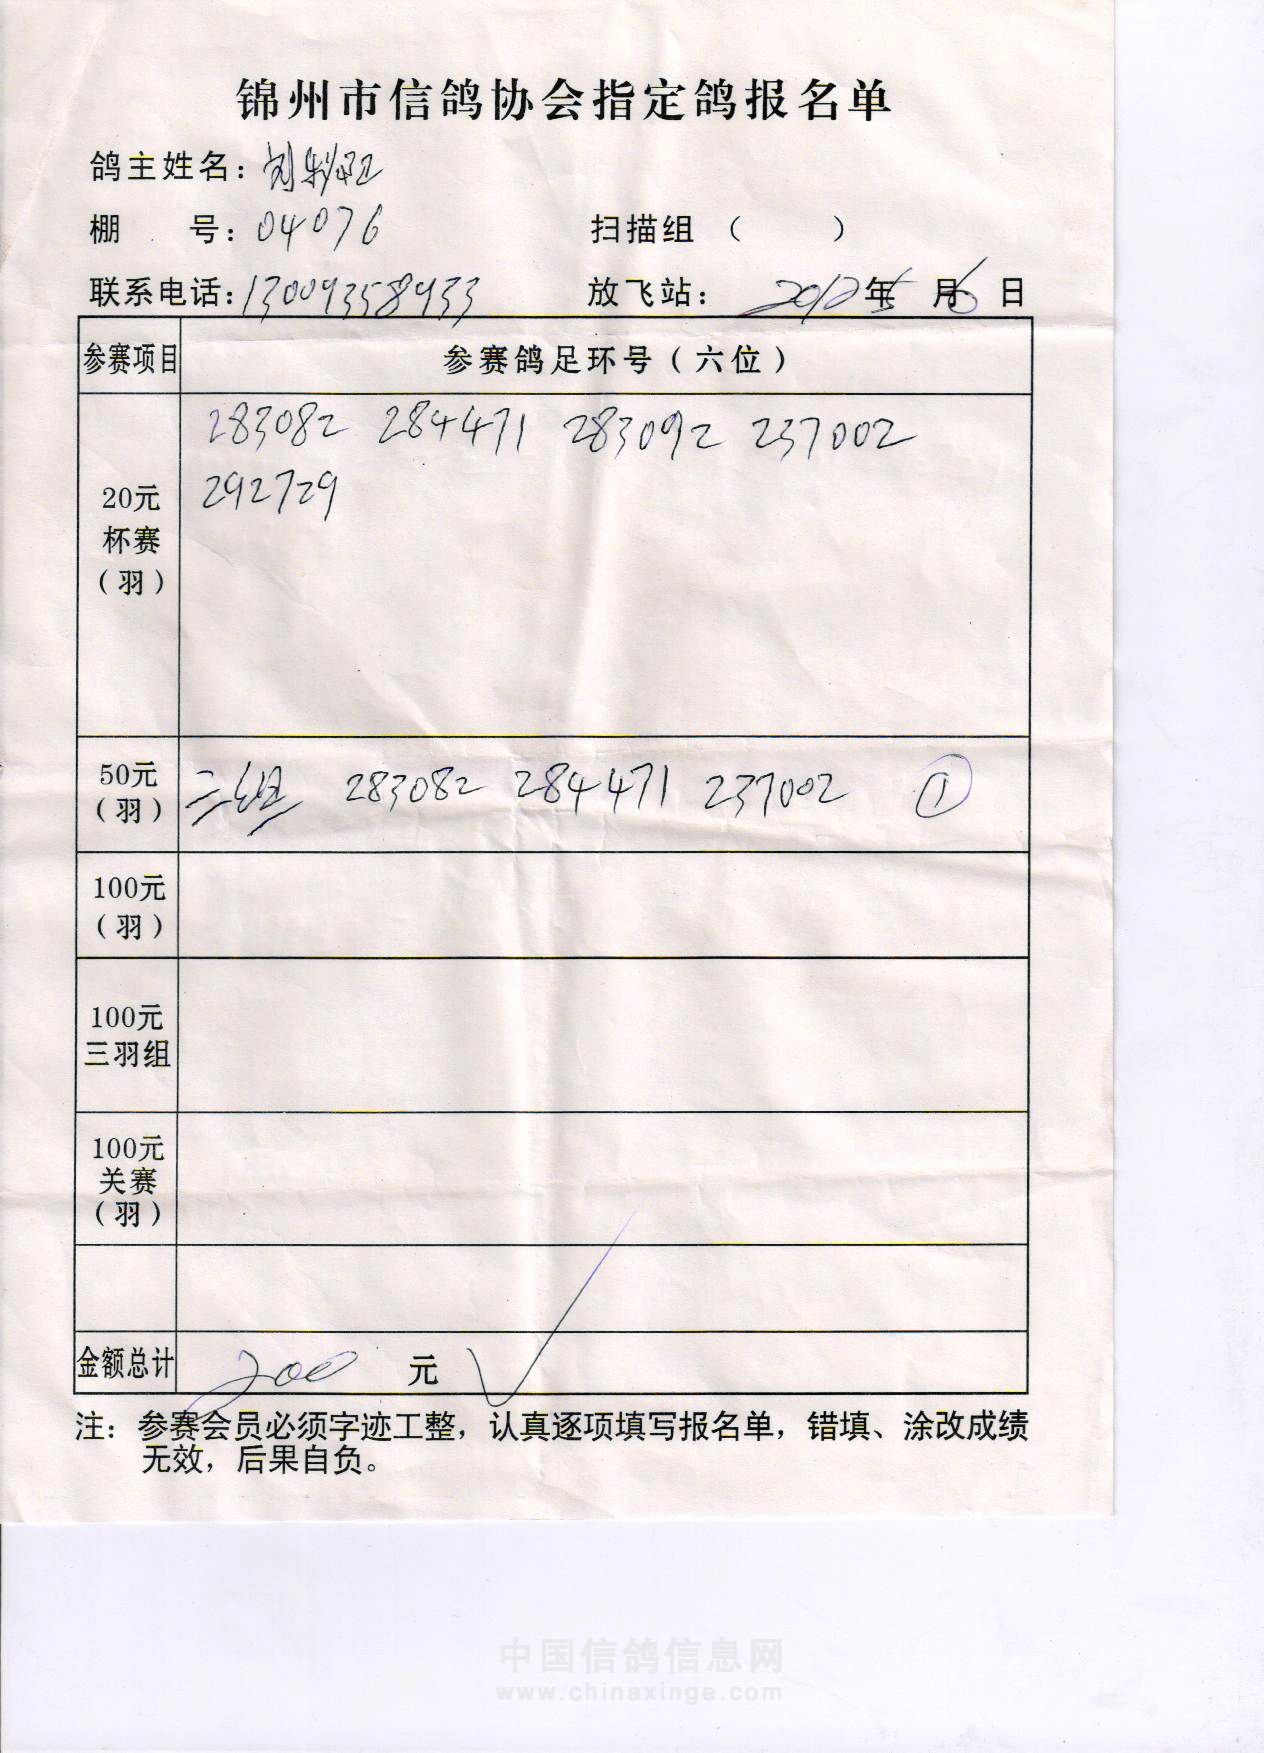 锦州市信鸽协会指定鸽报名单
鸽主姓名：刘
棚 号：04076 扫描组（ ）
联系电话：13009358933 放飞站： 2012年5月6日
参赛项目 参赛鸽足环号（六位）
20元
杯赛
（羽）
283082 284471 283092 237002
292729
50元
（羽）
二组 283082 284471 237002 ①
100元
（羽）
100元
三羽组
100元
关赛
（羽）
金额总计 200 元 ✓
注：参赛会员必须字迹工整，认真逐项填写报名单，错填、涂改成绩
无效，后果自负。
中国信鸽信息网
www.chinaxinge.com